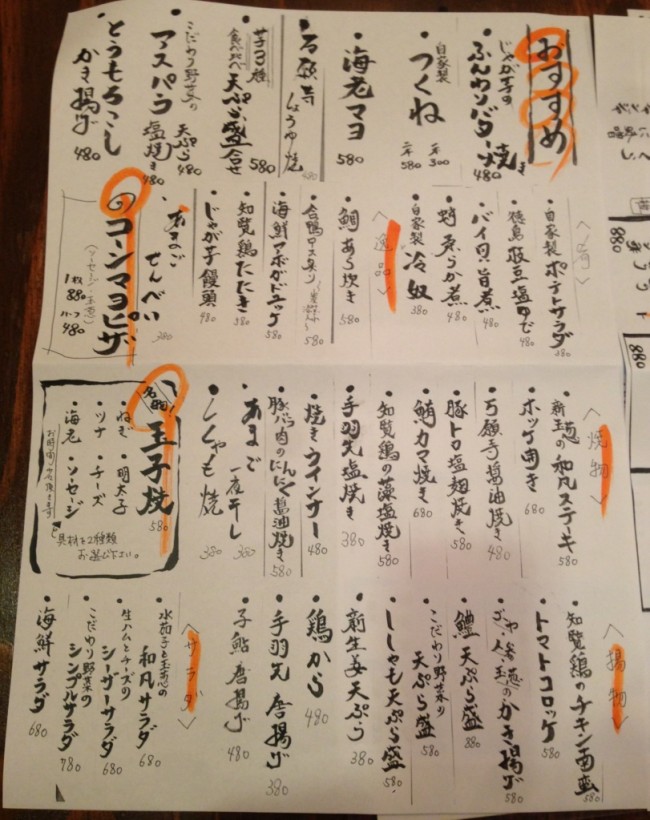 おすすめ
じゃが芋の
ふんわりバター焼き 480
自家製
つくね 一本 300 二本 580
海老マヨ 580
万願寺
しょうゆ焼 480
芋3種
食べ比べ 天ぷら盛合せ 580
こだわり野菜の 天ぷら 480
アスパラ 塩焼き 480
とうもろこし
かき揚げ 480
自家製 ポテトサラダ 380
徳島 枝豆塩ゆで 380
バイ貝 旨煮 480
蛸 柔らか煮 480
自家製 冷奴 380
〈逸品〉
鯛 あら炊き 580
合鴨ロース炙り 580
海鮮アボカドユッケ 580
知覧鶏 たたき 580
じゃが芋 饅頭 480
あまご
せんべい 380
のコーンマヨピザ
(ソーセージ・玉葱)
1枚 880
ハーフ 480
〈焼物〉
新玉葱の和風ステーキ 580
ホッケ開き 680
万願寺醤油焼き 480
豚トロ塩麹焼き 580
鮪カマ焼き 680
知覧鶏の藻塩焼き 580
手羽先塩焼き 380
焼きウインナー 480
豚バラ肉のにんにく醤油焼き 580
あまご 一夜干し 380
ししゃも焼 380
名物 玉子焼 580
ねぎ ・明太子
・ツナ ・チーズ
・海老 ・ソーセージ
具材を2種類
お選び下さい。
〈揚物〉
知覧鶏のチキン南蛮 580
トマトコロッケ 580
ゴーヤ・人参・玉葱のかき揚げ 580
鱧 天ぷら盛 880
こだわり野菜の
天ぷら盛 580
ししゃも天ぷら盛 580
新生姜天ぷら 380
鶏から 480
手羽先 唐揚げ 380
子鮎 唐揚げ 480
〈サラダ〉
水茄子と玉葱の
和風サラダ 680
生ハムとチーズの
シーザーサラダ 680
こだわり野菜の
シンプルサラダ 780
海鮮サラダ 680
880
880